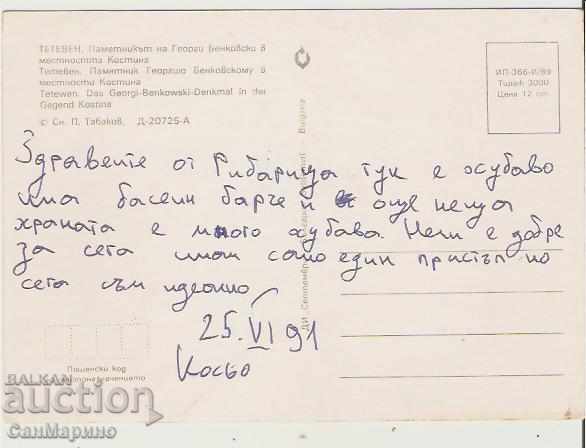 ТЕТЕВЕН. Паметникът на Георги Бенковски в
местността Костина
Тетевен. Памятник Георгию Бенковскому в
местности Костина
Tetewen. Das Georgi-Benkowski-Denkmal in der
Gegend Kostina
© Сн. П. Табаков, Д-20725-А
ИП-366-И/89
Тираж 3000
Цена 12 ст.
Bulgaria
ДИ „Септември
Здравейте от Рибарица тук е хубаво
има басеин барче и още неща
храната е много хубава Нели е добре
за сега имах само един пристъп но
сега съм идеално
25. VI 91
Косьо
Пощенски код
местоназначението
BALKAN
auction
СанМарино